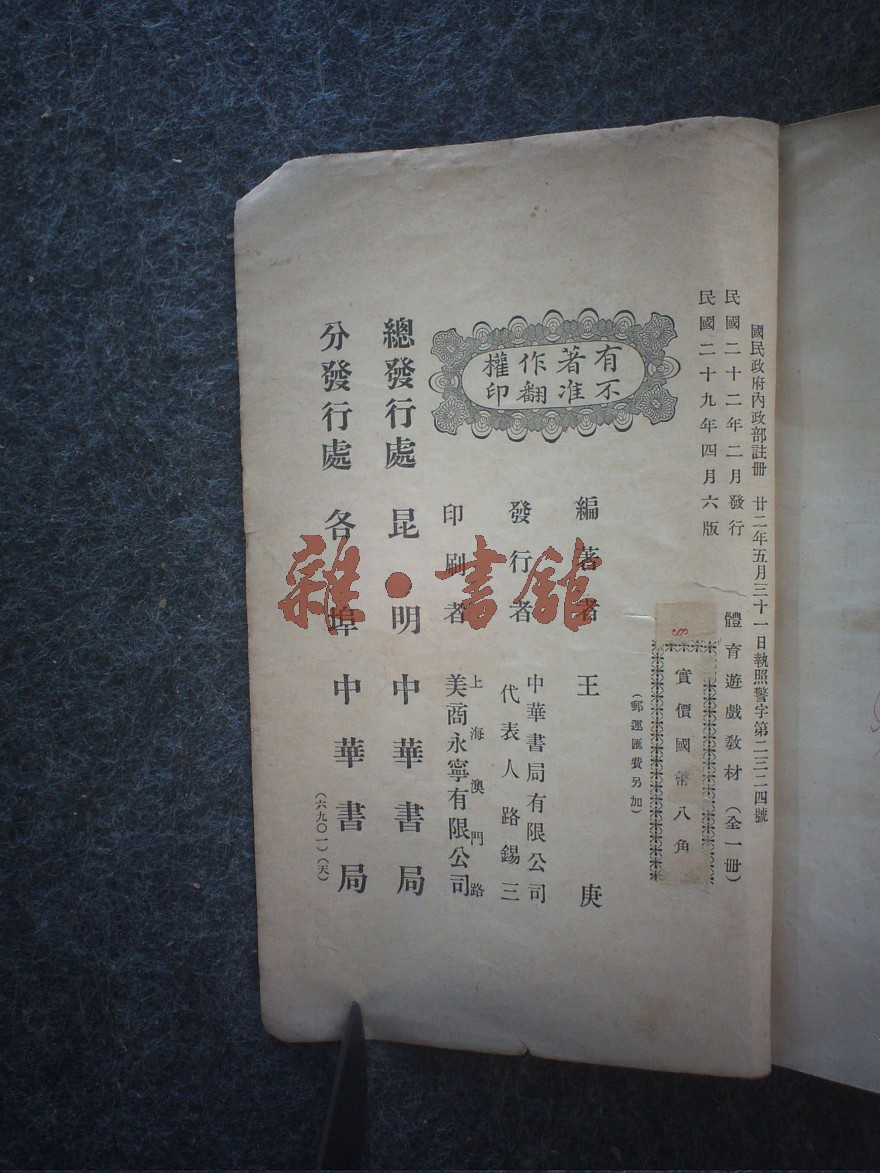 國民政府內政部註冊 廿二年五月三十一日執照警字第二三二四號
民國二十二年二月發行
民國二十九年四月六版
體育遊戲教材（全一册）
實價國幣八角
（郵運匯費另加）
有著作權
不准翻印
編著者 王庚
發行者 中華書局有限公司
代表人路錫三
印刷者 上海澳門路
美商永寧有限公司
總發行處 昆明中華書局
分發行處 各埠中華書局
（六九〇一）（天）
雜·書館